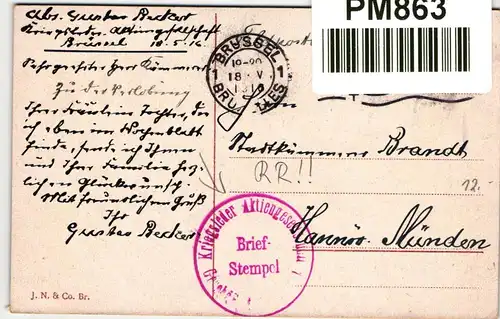 Abs. Gustav Beckert
Kriegsleder-Aktiengesellschaft
Brüssel 18.5.16
Sehr geehrter Herr Kämmerer
Zu der Verlobung
Ihrer Fräulein Tochter, die
ich eben im Wochenblatt
finde, sende ich Ihnen
und Ihrer Familie herz-
lichen Glückwunsch.
Mit freundlichem Gruß
Ihr
Gustav Beckert
J. N. & Co. Br.
Feldpost
BRÜSSEL
1 18 V 1
BRUXELLES
PM863
Stadtkämmerer Brandt
RR!!
12.-
Hannöv. Münden
Kriegsleder Aktiengesellschaft
Brief-
Stempel